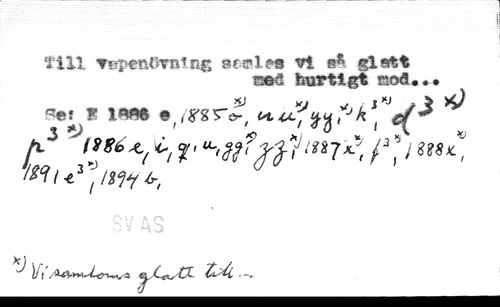 Till vapenövning samlas vi så glatt
med hurtigt mod...
Se: E 1886 e, 1885 o*), u ü*), yy*), k3*), d3*)
p3*) 1886 e, i, q, u, gg*), zz*), 1887 x*), f3*), 1888 x*),
1891 e3*), 1894 b,
SVAS
*) Vi samloms glatt till...